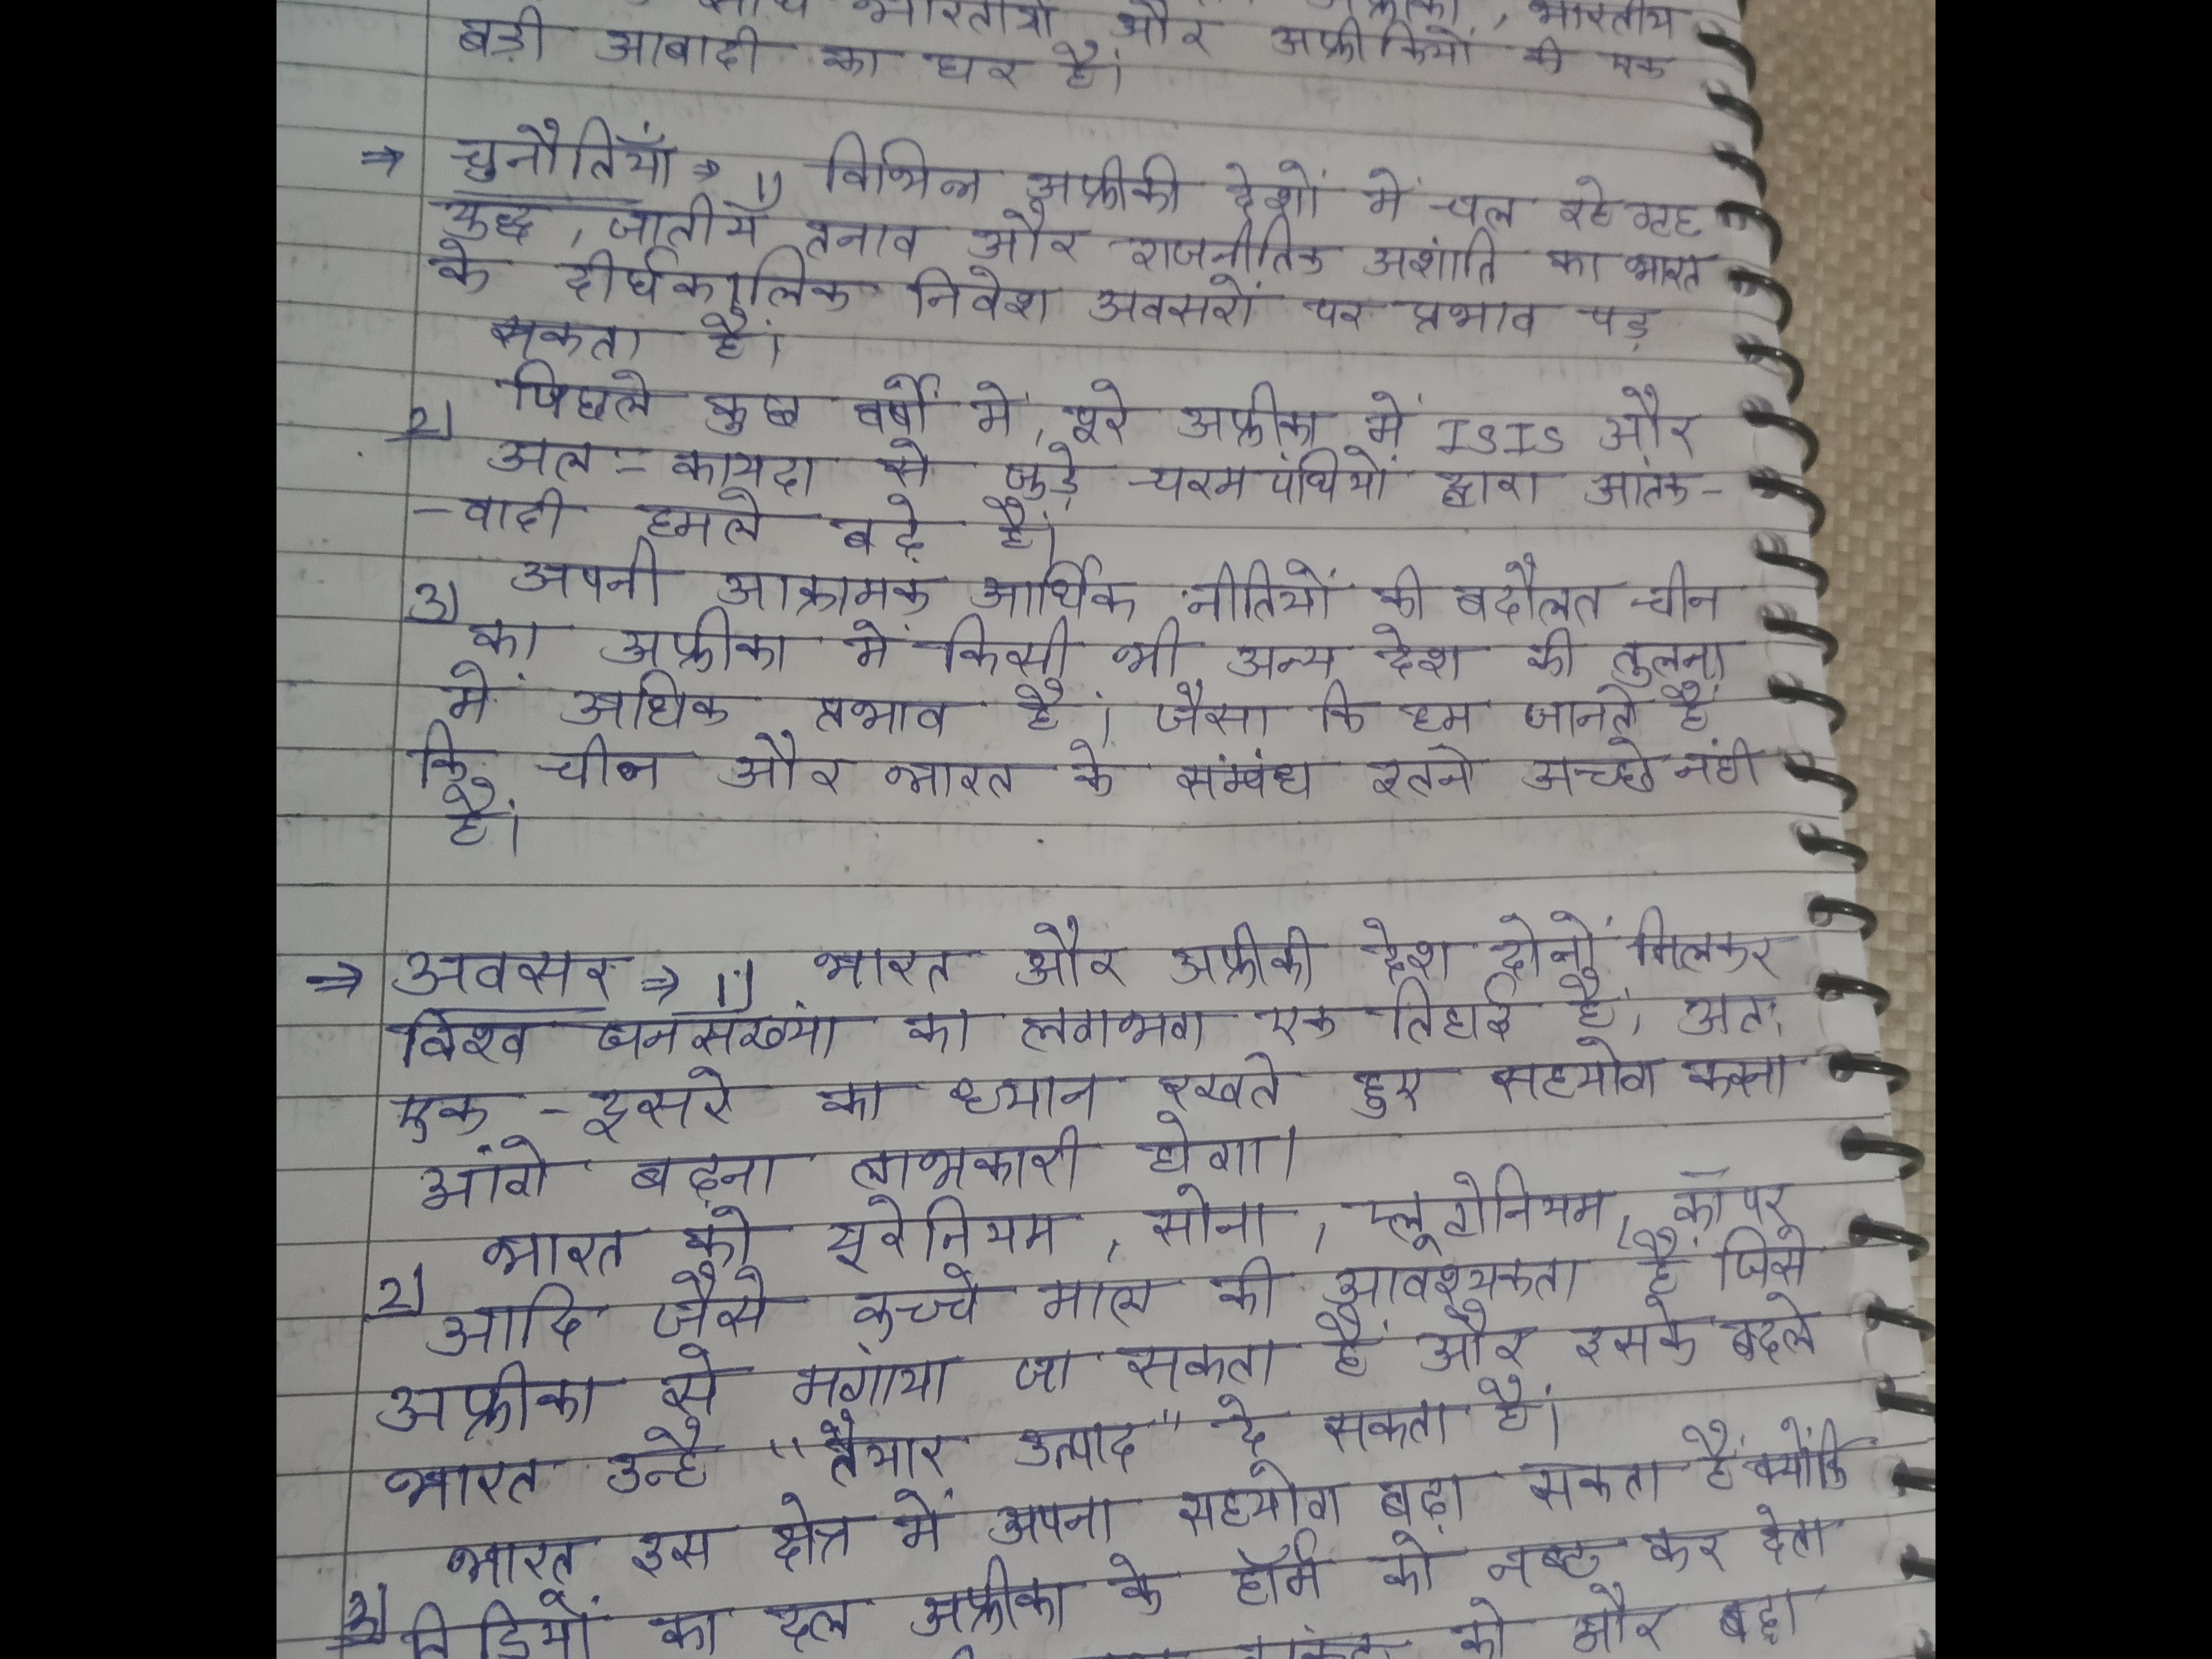 भारतीयों और अफ्रीका, भारतीय
बड़ी आबादी का घर है। अफ्रीकियों की एक
⇒ चुनौतियाँ ⇒ 1) विभिन्न अफ्रीकी देशों में चल रहे गृह
युद्ध, जातीय तनाव और राजनीतिक अशांति का भारत
के दीर्घकालिक निवेश अवसरों पर प्रभाव पड़
सकता है।
2) पिछले कुछ वर्षों में, पूरे अफ्रीका में ISIS और
अल-कायदा से जुड़े चरमपंथियों द्वारा आंतक-
-वादी हमले बढ़े हैं।
3) अपनी आक्रामक आर्थिक नीतियों की बदौलत चीन
का अफ्रीका में किसी भी अन्य देश की तुलना
में अधिक प्रभाव है। जैसा कि हम जानते हैं
कि चीन और भारत के संम्बंध इतने अच्छे नंही
है।
⇒ अवसर ⇒ 1) भारत और अफ्रीकी देश दोनों मिलकर
विश्व जनसंख्या का लगभग एक तिहाई है, अतः
एक-दूसरे का ध्यान रखते हुए सहयोग करना
आंगे बढ़ना लाभकारी होगा।
2) भारत को यूरेनियम, सोना, प्लूटोनियम, कॉपर
आदि जैसे कच्चे माल की आवश्यकता है जिसे
अफ्रीका से मगांया जा सकता है और इसके बदले
भारत उन्है "तैयार उत्पाद" दे सकता है।
3) भारत इस क्षेत्र में अपना सहयोग बढ़ा सकता है क्योंकि
टिड्डियों का दल अफ्रीका के हॉर्म को नष्ट कर देता
को और बढ़ा